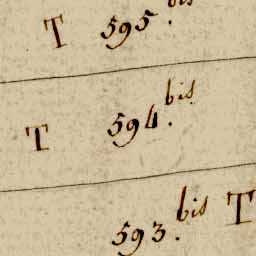 T 595.bis
T 594.bis
593.bis T